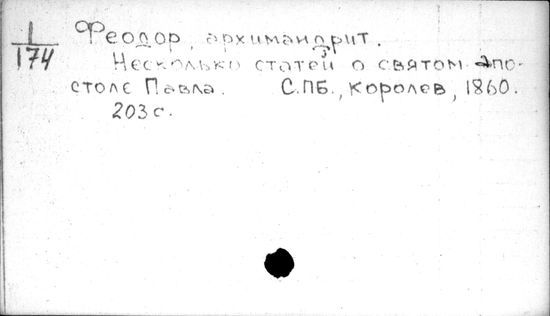 1/174
Феодор, архимандрит.
Несколько статей о святом апо-
столе Павла. С.ПБ., Королев, 1860.
203 с.